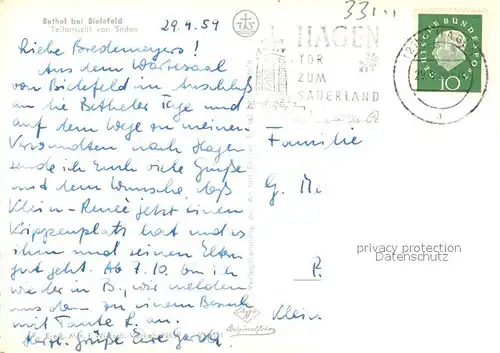 Bethel bei Bielefeld
Teilansicht von Süden
29.9.59
Liebe Bredemeyers!
Aus dem Wartesaal
von Bielefeld im Anschluß
an die Betheler Tage und
auf dem Wege zu meinen
Verwandten nach Hagen
sende ich Euch viele Grüße
und dem Wunsche daß
Klein-Reneé jetzt einen
Krippenplatz hat und es
ihm und seinen Eltern
gut geht. Ab 7.10. bin ich
wieder in B., wir melden
uns dann zu einem Besuch
mit Tante R. an.
Herzl. Grüße Euer
33
HAGEN
TOR
ZUM
SAUERLAND
DEUTSCHE BUNDESPOST
10
a
Familie
G.
P.
Klein
privacy protection
Datenschutz
Originalfoto